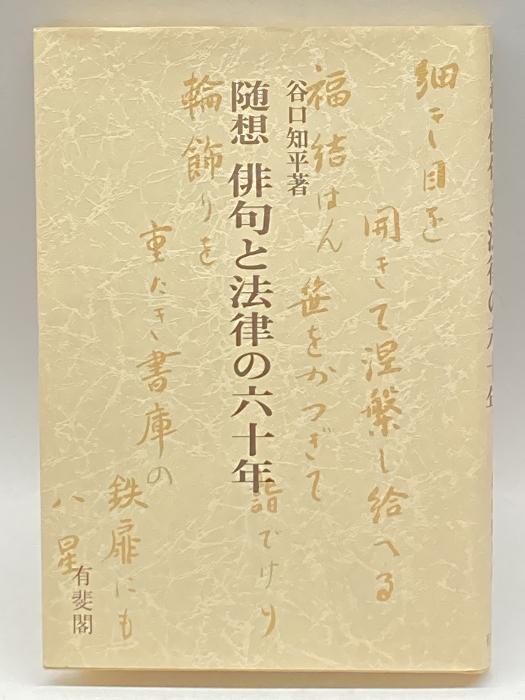 谷口知平著
随想 俳句と法律の六十年
有斐閣
細き目を
開きて涅槃し給へる
福結はん
笹をかつぎて
詣でけり
輪飾りを
重たき書庫の
鉄扉にも
八星